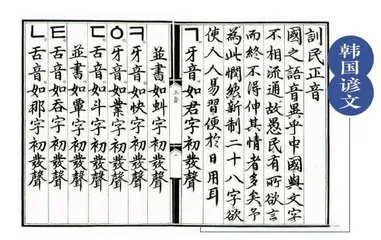 韩国谚文
訓民正音
國之語音異乎中國與文字
不相流通故愚民有所欲言
而終不得伸其情者多矣予
為此憫然新制二十八字欲
使人人易習便於日用耳
ㄱ牙音如君字初發聲
並書如虯字初發聲
ㅋ牙音如快字初發聲
ㆁ牙音如業字初發聲
ㄷ舌音如斗字初發聲
並書如覃字初發聲
ㅌ舌音如呑字初發聲
ㄴ舌音如那字初發聲